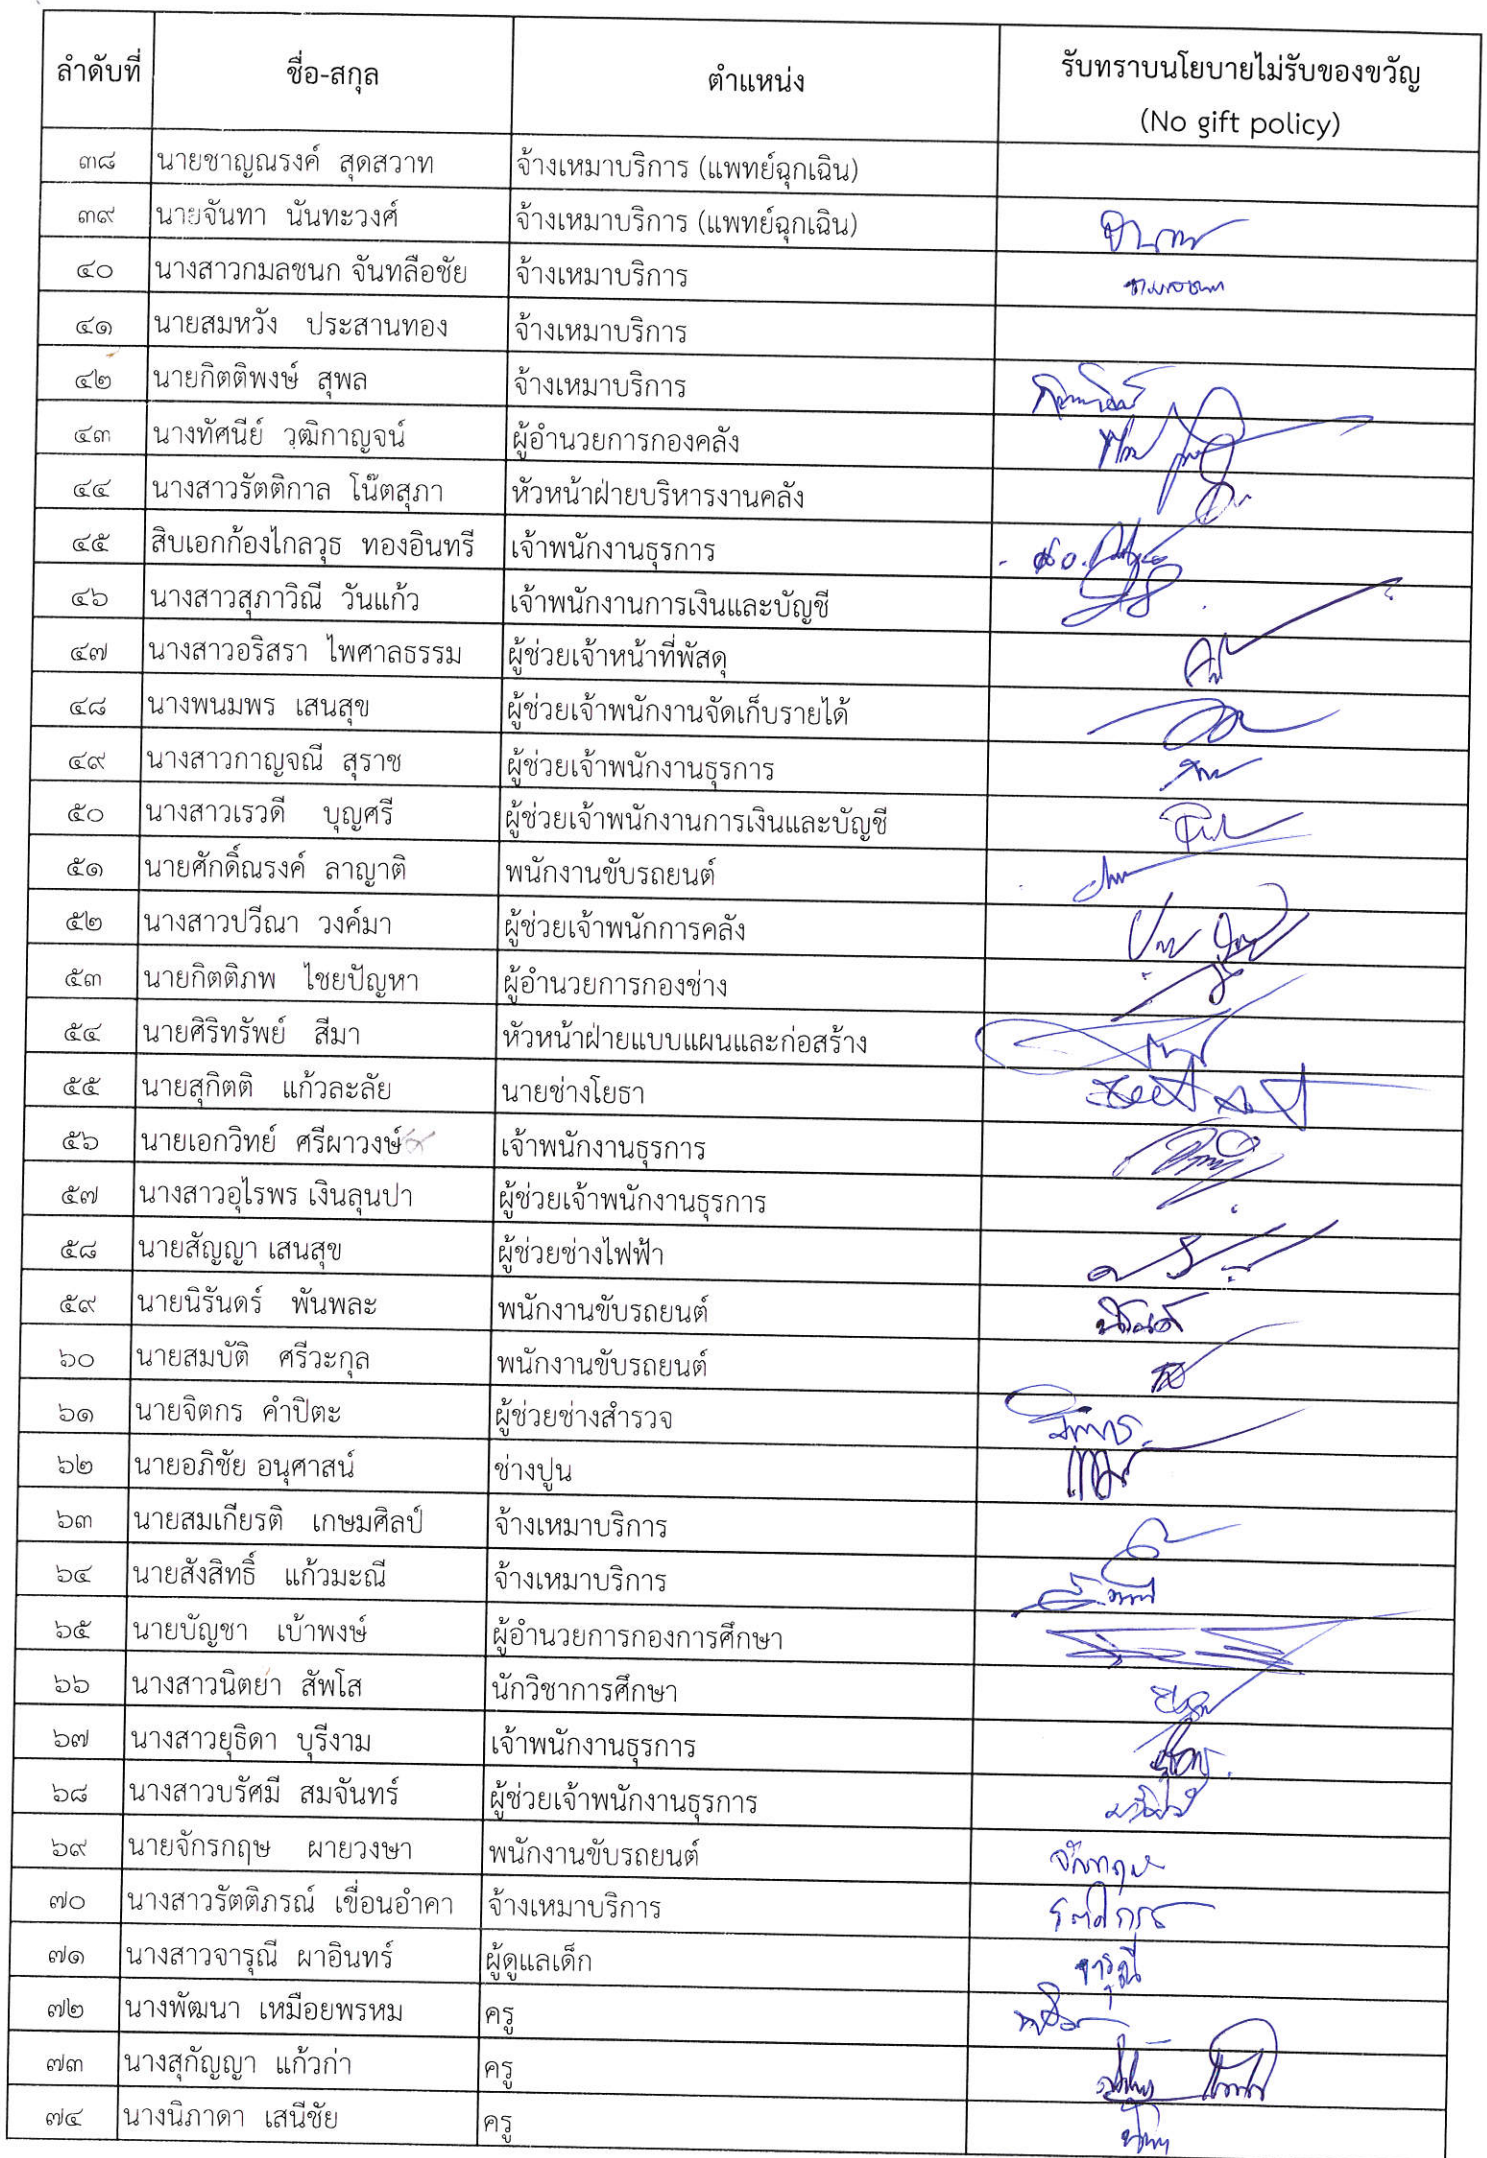 ลำดับที่ ชื่อ-สกุล ตำแหน่ง รับทราบนโยบายไม่รับของขวัญ
(No gift policy)
๓๘ นายชาญณรงค์ สุดสวาท จ้างเหมาบริการ (แพทย์ฉุกเฉิน)
๓๙ นายจันทา นันทะวงศ์ จ้างเหมาบริการ (แพทย์ฉุกเฉิน)
๔๐ นางสาวกมลชนก จันทลือชัย จ้างเหมาบริการ
๔๑ นายสมหวัง ประสานทอง จ้างเหมาบริการ
๔๒ นายกิตติพงษ์ สุพล จ้างเหมาบริการ
๔๓ นางทัศนีย์ วุฒิกาญจน์ ผู้อำนวยการกองคลัง
๔๔ นางสาวรัตติกาล โน๊ตสุภา หัวหน้าฝ่ายบริหารงานคลัง
๔๕ สิบเอกก้องไกลวุธ ทองอินทรี เจ้าพนักงานธุรการ
๔๖ นางสาวสุภาวิณี วันแก้ว เจ้าพนักงานการเงินและบัญชี
๔๗ นางสาวอริสรา ไพศาลธรรม ผู้ช่วยเจ้าหน้าที่พัสดุ
๔๘ นางพนมพร เสนสุข ผู้ช่วยเจ้าพนักงานจัดเก็บรายได้
๔๙ นางสาวกาญจณี สุราช ผู้ช่วยเจ้าพนักงานธุรการ
๕๐ นางสาวเรวดี บุญศรี ผู้ช่วยเจ้าพนักงานการเงินและบัญชี
๕๑ นายศักดิ์ณรงค์ ลาญาติ พนักงานขับรถยนต์
๕๒ นางสาวปวีณา วงค์มา ผู้ช่วยเจ้าพนักการคลัง
๕๓ นายกิตติภพ ไชยปัญหา ผู้อำนวยการกองช่าง
๕๔ นายศิริทรัพย์ สีมา หัวหน้าฝ่ายแบบแผนและก่อสร้าง
๕๕ นายสุกิตติ แก้วละลัย นายช่างโยธา
๕๖ นายเอกวิทย์ ศรีผาวงษ์ เจ้าพนักงานธุรการ
๕๗ นางสาวอุไรพร เงินลุนปา ผู้ช่วยเจ้าพนักงานธุรการ
๕๘ นายสัญญา เสนสุข ผู้ช่วยช่างไฟฟ้า
๕๙ นายนิรันดร์ พันพละ พนักงานขับรถยนต์ นิรันดร์
๖๐ นายสมบัติ ศรีวะกุล พนักงานขับรถยนต์
๖๑ นายจิตกร คำปิตะ ผู้ช่วยช่างสำรวจ
๖๒ นายอภิชัย อนุศาสน์ ช่างปูน
๖๓ นายสมเกียรติ เกษมศิลป์ จ้างเหมาบริการ
๖๔ นายสังสิทธิ์ แก้วมะณี จ้างเหมาบริการ
๖๕ นายบัญชา เบ้าพงษ์ ผู้อำนวยการกองการศึกษา
๖๖ นางสาวนิตยา สัพโส นักวิชาการศึกษา
๖๗ นางสาวยุธิดา บุรีงาม เจ้าพนักงานธุรการ
๖๘ นางสาวบรัศมี สมจันทร์ ผู้ช่วยเจ้าพนักงานธุรการ
๖๙ นายจักรกฤษ ผายวงษา พนักงานขับรถยนต์ จักรกฤษ
๗๐ นางสาวรัตติภรณ์ เขื่อนอำคา จ้างเหมาบริการ
๗๑ นางสาวจารุณี ผาอินทร์ ผู้ดูแลเด็ก จารุณี
๗๒ นางพัฒนา เหมือยพรหม ครู
๗๓ นางสุกัญญา แก้วก่า ครู
๗๔ นางนิภาดา เสนีชัย ครู